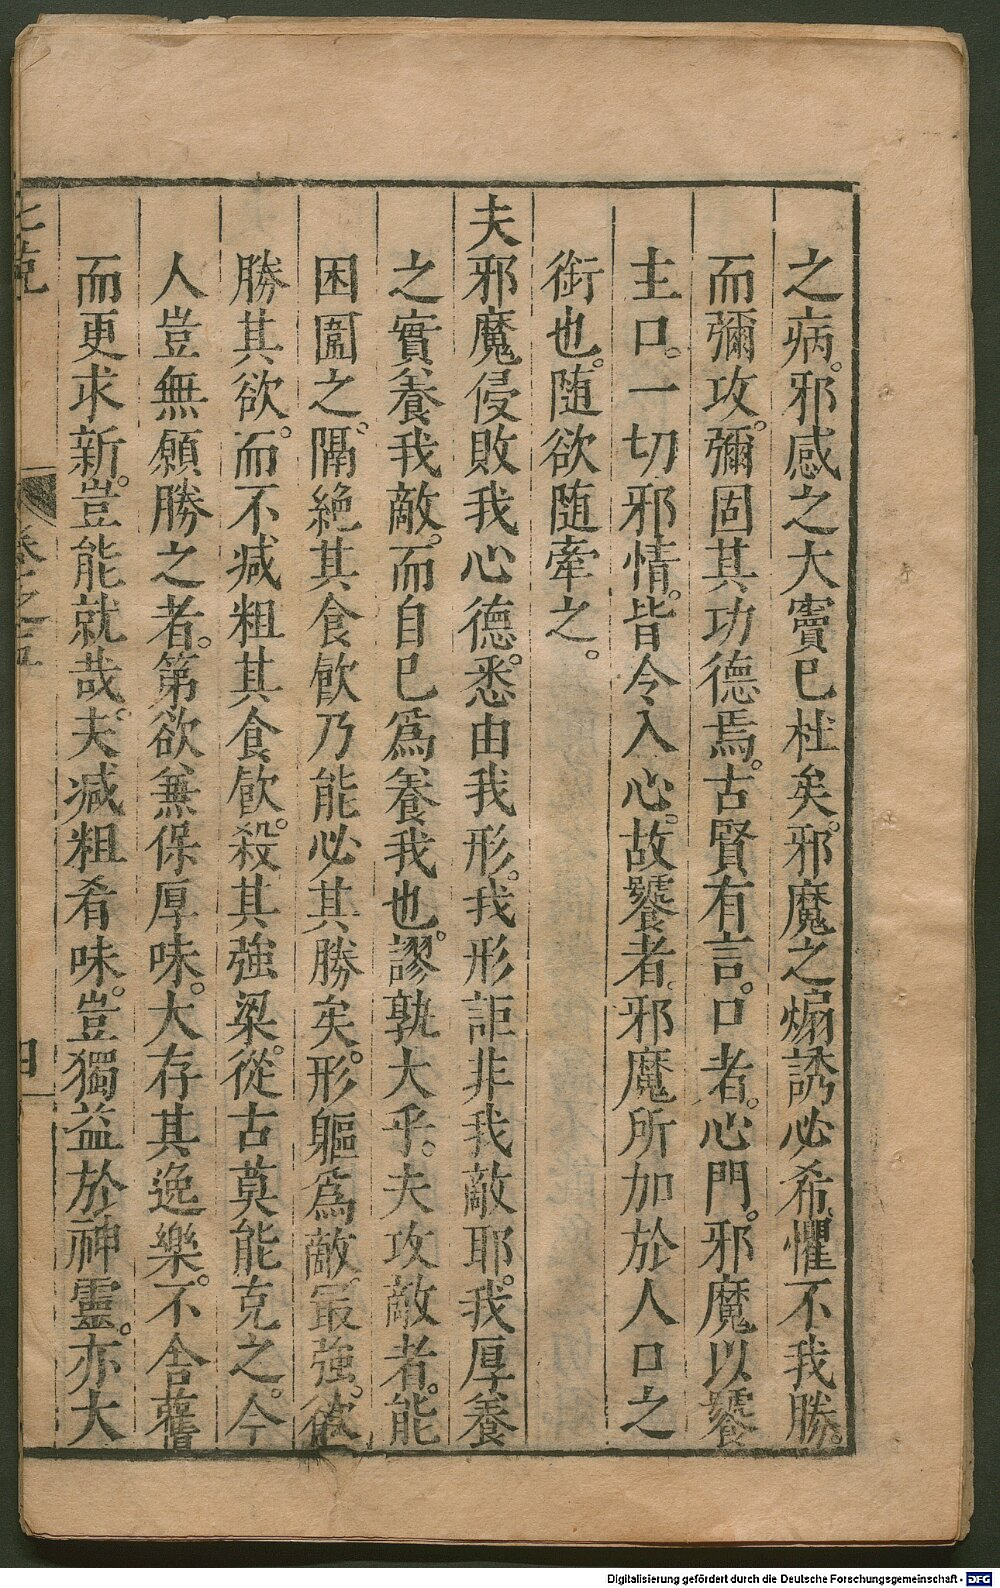 之病。邪感之大竇已杜矣。邪魔之煽誘必希。懼不我勝。
而彌攻。彌固其功德焉。古賢有言。口者。心門。邪魔以饕
主口。一切邪情。皆令入心。故饕者。邪魔所加於人口之
銜也。随欲随牽之。
夫邪魔侵敗我心德。悉由我形。我形詎非我敵耶。我厚養
之實養我敵。而自已爲養我也。謬孰大乎。夫攻敵者。能
困圍之。隔絶其食飲乃能必其勝矣。形軀爲敵。最強。欲
勝其欲。而不减粗其食飲。殺其強梁。從古莫能克之。今
人豈無願勝之者。第欲兼保厚味。大存其逸樂。不舍舊
而更求新。豈能就哉。夫减粗肴味。豈獨益於神靈。亦大
七克
卷之五